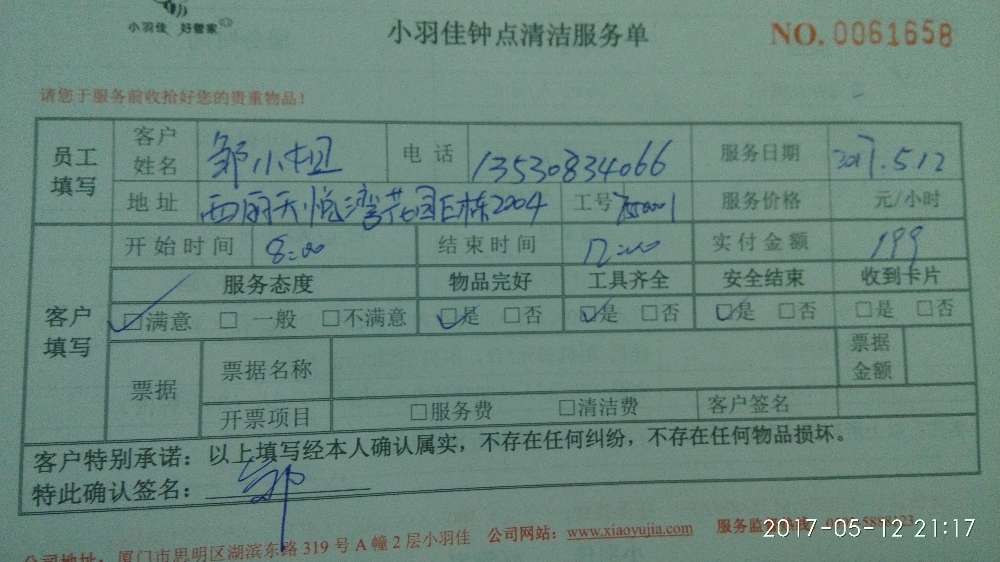 小羽佳 好管家
小羽佳钟点清洁服务单
NO. 0061658
请您于服务前收拾好您的贵重物品!
员工填写 客户姓名 邹小姐 电话 13530834066 服务日期 2017.5.12
地址 西丽天悦湾花园E栋2004 工号 服务价格 元/小时
客户填写 开始时间 8:00 结束时间 12:00 实付金额 199
服务态度 物品完好 工具齐全 安全结束 收到卡片
□满意 □一般 □不满意 □是 □否 □是 □否 □是 □否 □是 □否
票据 票据名称 票据金额
开票项目 □服务费 □清洁费 客户签名
客户特别承诺：以上填写经本人确认属实，不存在任何纠纷，不存在任何物品损坏。
特此确认签名： 邹
公司地址：厦门市思明区湖滨东路319号A幢2层小羽佳 公司网站：www.xiaoyujia.com 服务监
2017-05-12 21:17